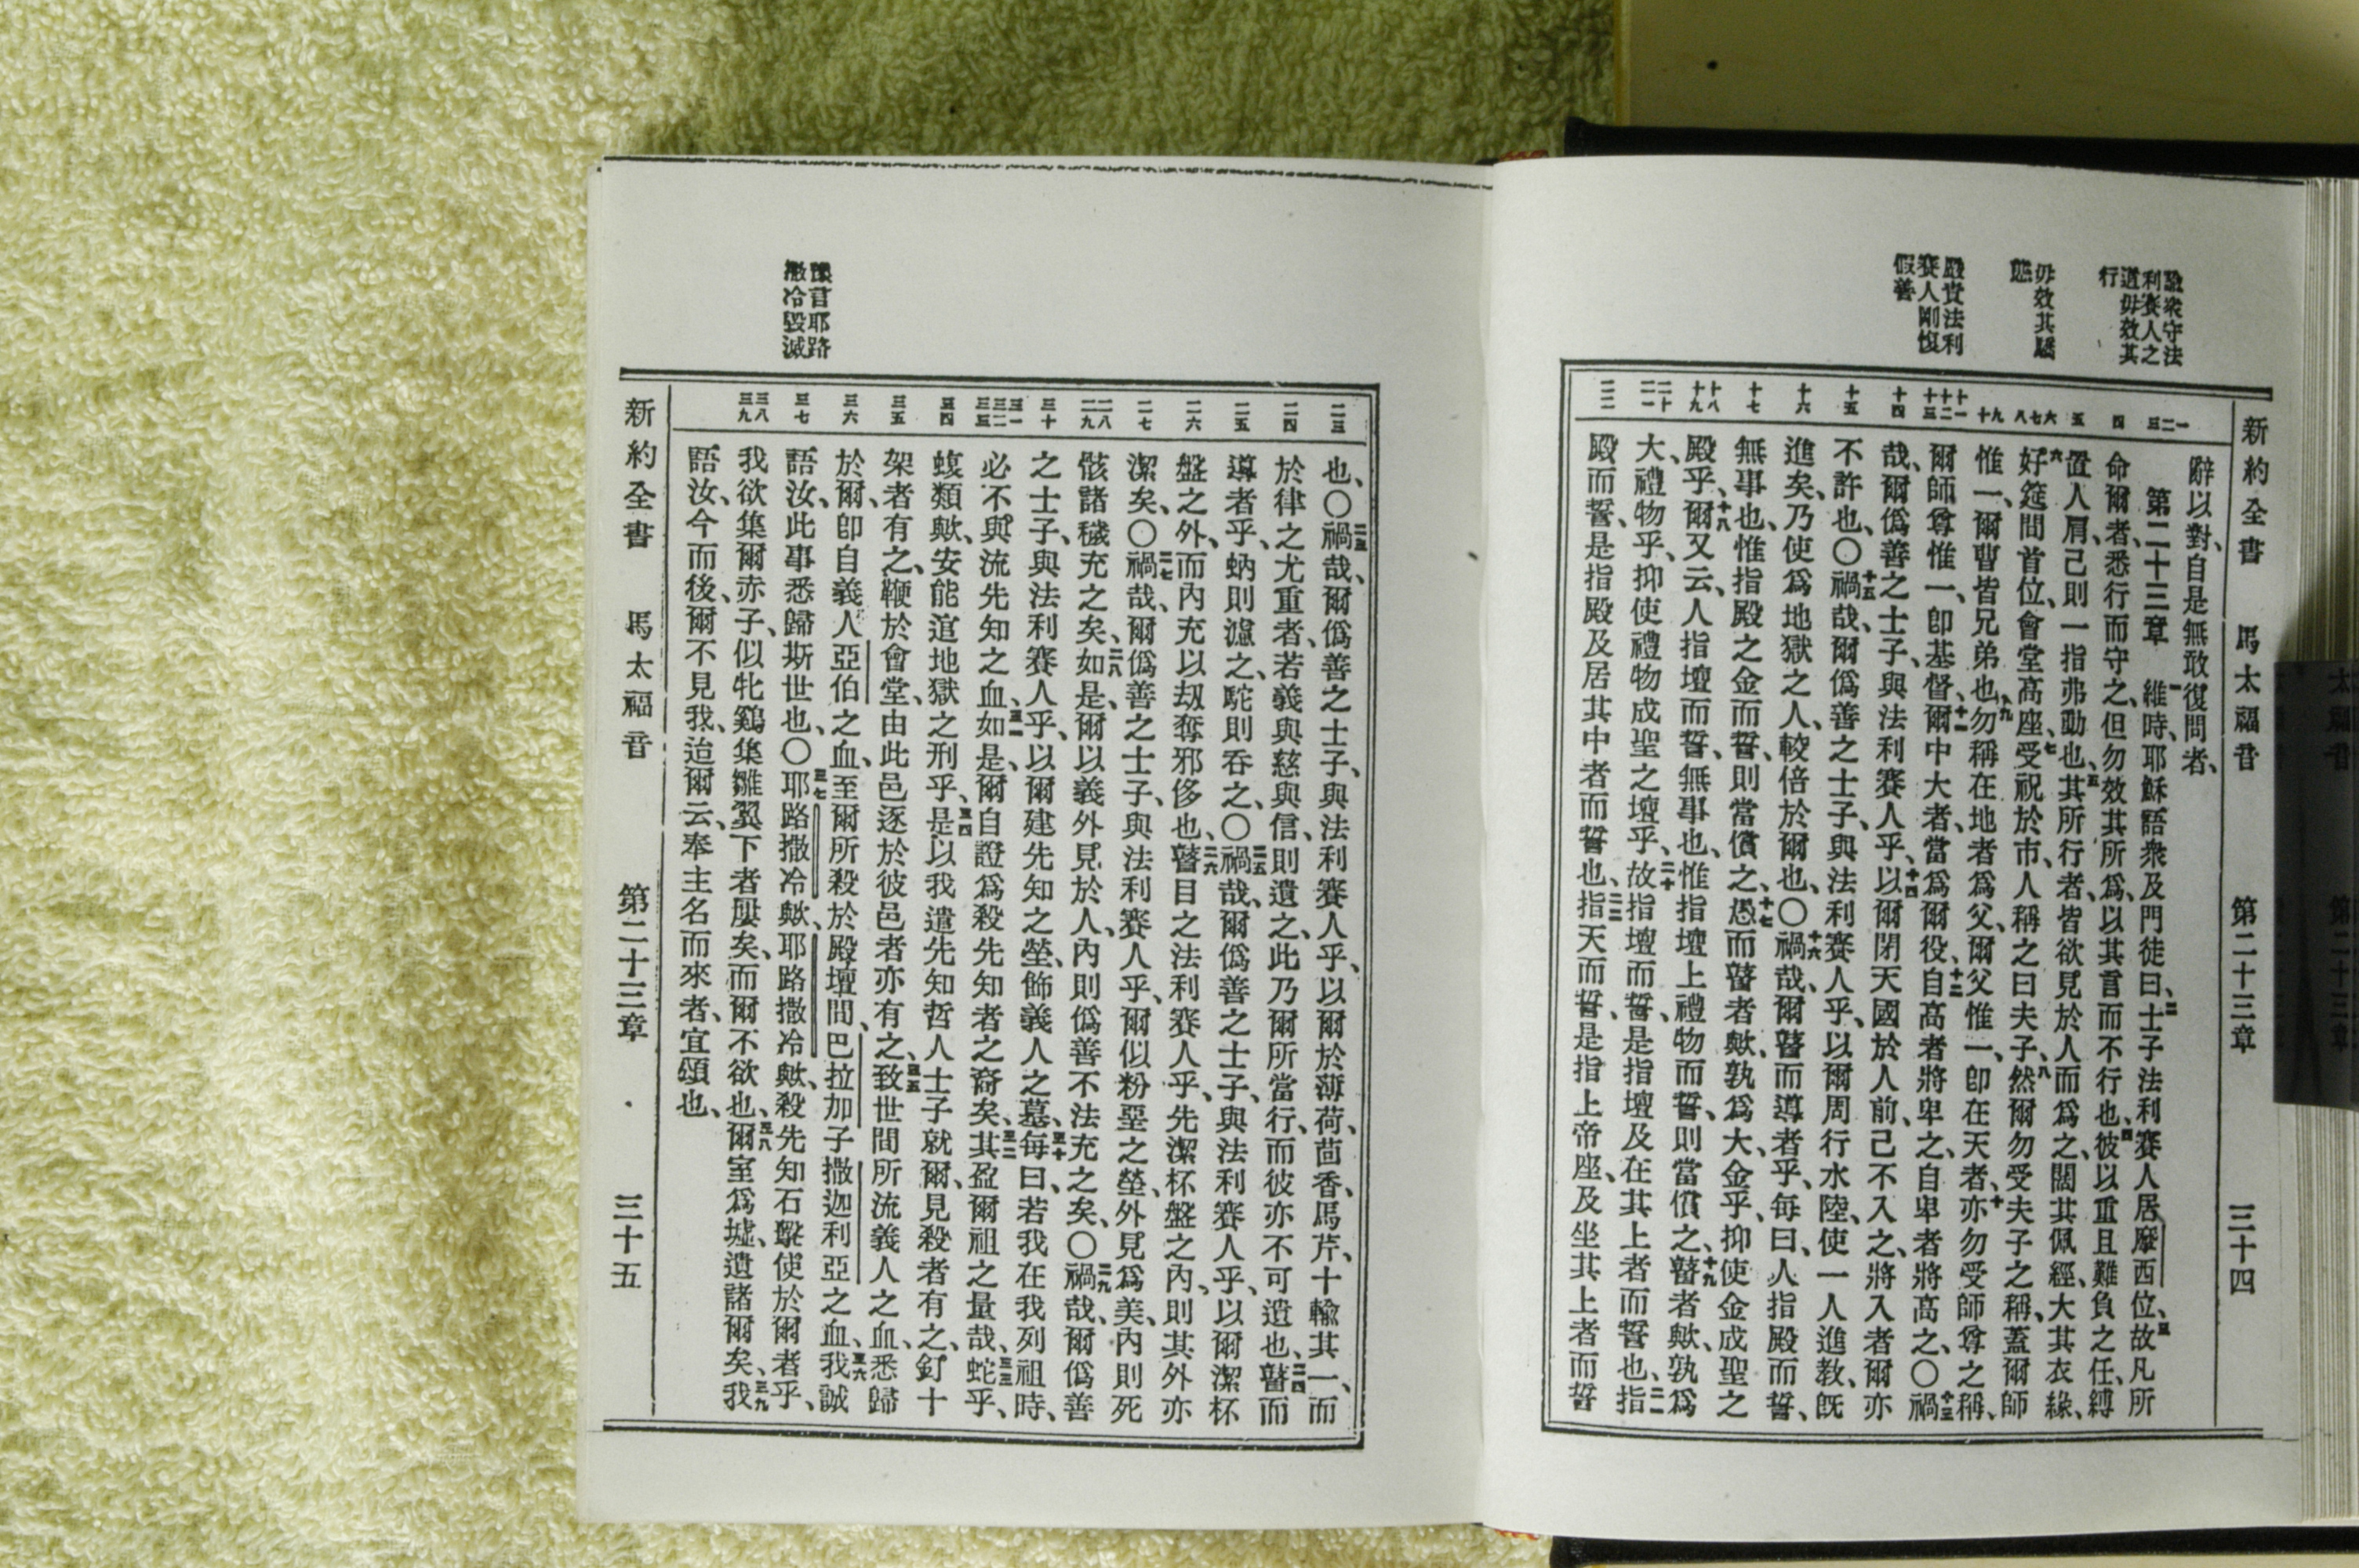 新約全書 馬太福音 第二十三章 三十四
諭衆守法
利賽人之
道毋效其
行
毋效其驕
態
嚴責法利
賽人剛愎
假善
一
二
三
四
五
六
七
八
九
十
十一
十二
十三
十四
十五
十六
十七
十八
十九
二十
二一
二二
辭以對、自是無敢復問者、
第二十三章 一維時、耶穌語衆及門徒曰、二士子法利賽人居摩西位、三故凡所
命爾者、悉行而守之、但勿效其所爲、以其言而不行也、四彼以重且難負之任、縛
置人肩、己則一指弗動也、五其所行者、皆欲見於人而爲之、闊其佩經、大其衣緣、
六好筵間首位、會堂高座、七受祝於市、人稱之曰夫子、八然爾勿受夫子之稱、蓋爾師
惟一、爾曹皆兄弟也、九勿稱在地者爲父、爾父惟一、卽在天者、十亦勿受師尊之稱、
爾師尊惟一、卽基督、十一爾中大者、當爲爾役、十二自高者將卑之、自卑者將高之、〇十三禍
哉、爾僞善之士子、與法利賽人乎、十四以爾閉天國於人前、己不入之、將入者爾亦
不許也、〇十五禍哉、爾僞善之士子、與法利賽人乎、以爾周行水陸、使一人進敎、旣
進矣、乃使爲地獄之人、較倍於爾也、〇十六禍哉、爾瞽而導者乎、每曰、人指殿而誓、
無事也、惟指殿之金而誓、則當償之、十七愚而瞽者歟、孰爲大、金乎、抑使金成聖之
殿乎、十八爾又云、人指壇而誓、無事也、惟指壇上禮物而誓、則當償之、十九瞽者歟、孰爲
大、禮物乎、抑使禮物成聖之壇乎、二十故指壇而誓、是指壇及在其上者而誓也、二一指
殿而誓、是指殿及居其中者而誓也、二二指天而誓、是指上帝座、及坐其上者而誓
豫言耶路
撒冷毀滅
二三
二四
二五
二六
二七
二八
二九
三十
三一
三二
三三
三四
三五
三六
三七
三八
三九
也、〇二三禍哉、爾僞善之士子、與法利賽人乎、以爾於薄荷、茴香、馬芹、十輸其一、而
於律之尤重者、若義與慈與信、則遺之、此乃爾所當行、而彼亦不可遺也、二四瞽而
導者乎、蚋則濾之、駝則吞之、〇二五禍哉、爾僞善之士子、與法利賽人乎、以爾潔杯
盤之外、而內充以刼奪邪侈也、二六瞽目之法利賽人乎、先潔杯盤之內、則其外亦
潔矣、〇二七禍哉、爾僞善之士子、與法利賽人乎、爾似粉堊之塋、外見爲美、內則死
骸諸穢充之矣、二八如是、爾以義外見於人、內則僞善不法充之矣、〇二九禍哉、爾僞善
之士子、與法利賽人乎、以爾建先知之塋、飾義人之墓、三十每曰、若我在我列祖時、
必不與流先知之血、三一如是、爾自證爲殺先知者之裔矣、三二其盈爾祖之量哉、三三蛇乎、
蝮類歟、安能逭地獄之刑乎、三四是以我遣先知哲人士子就爾、見殺者有之、釘十
架者有之、鞭於會堂、由此邑逐於彼邑者亦有之、三五致世間所流義人之血、悉歸
於爾、卽自義人亞伯之血、至爾所殺於殿壇間、巴拉加子撒迦利亞之血、三六我誠
語汝、此事悉歸斯世也、〇三七耶路撒冷歟、耶路撒冷歟、殺先知石擊使於爾者乎、
我欲集爾赤子、似牝鷄集雛翼下者屢矣、而爾不欲也、三八爾室爲墟、遺諸爾矣、三九我
語汝、今而後、爾不見我、迨爾云、奉主名而來者、宜頌也、
新約全書 馬太福音 第二十三章 三十五